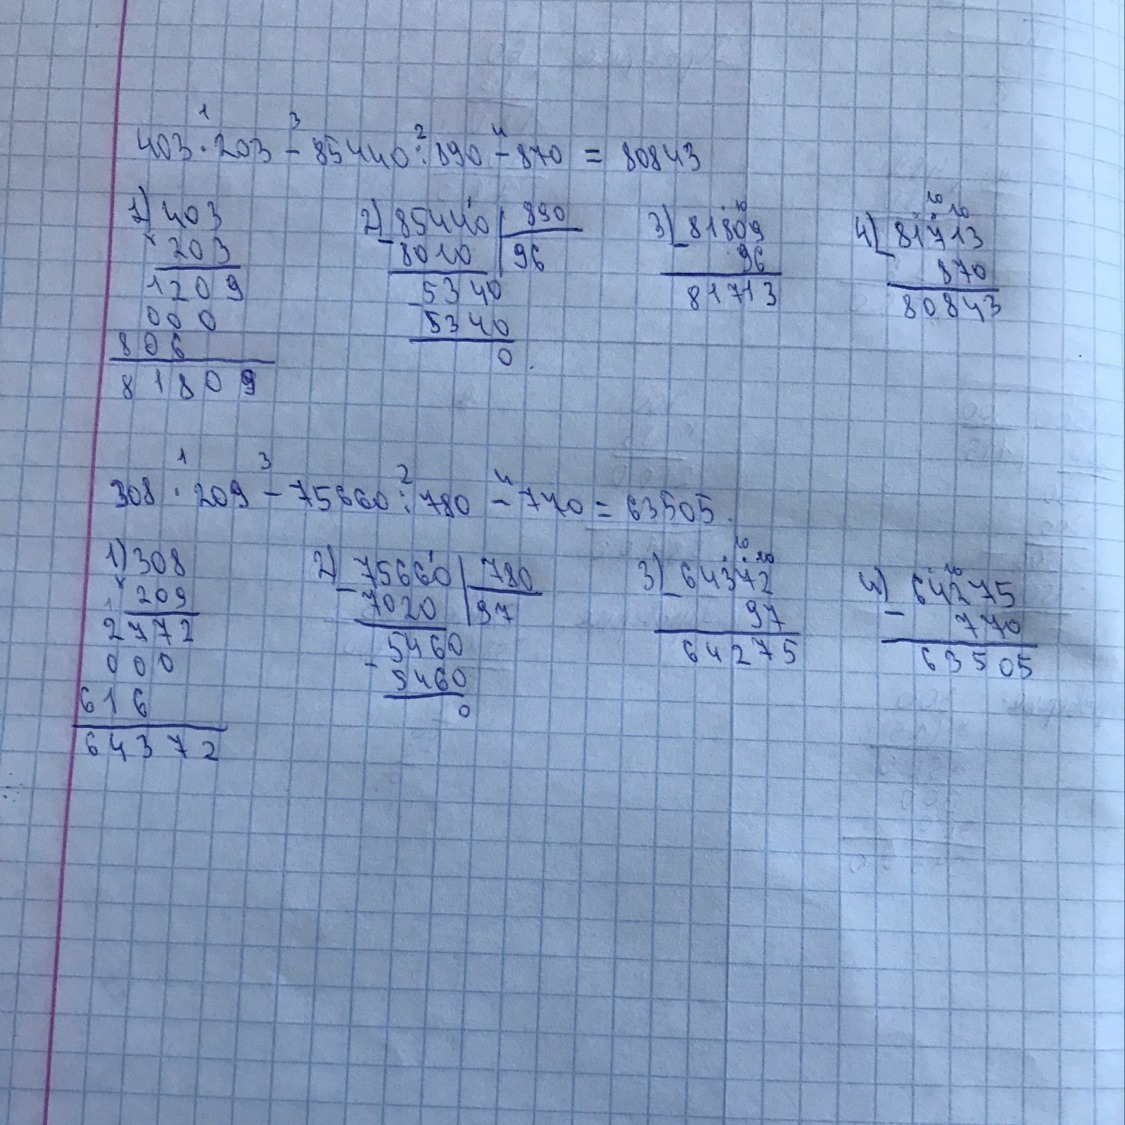 403 · 203 - 85440 : 890 - 870 = 80843
1) 403
× 203
1209
000
806
81809
2) 85440 | 890
- 8010 | 96
5340
- 5340
0
3) 81809
- 96
81713
4) 81713
- 870
80843
308 · 209 - 75660 : 780 - 770 = 63505
1) 308
× 209
2772
000
616
64372
2) 75660 | 780
- 7020 | 97
5460
- 5460
0
3) 64372
- 97
64275
4) 64275
- 770
63505